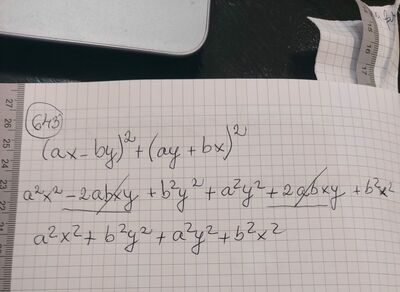 645
(ax - by)² + (ay + bx)²
a²x² - 2abxy + b²y² + a²y² + 2abxy + b²x²
a²x² + b²y² + a²y² + b²x²
27
26
25
24
23
22
15
16
17